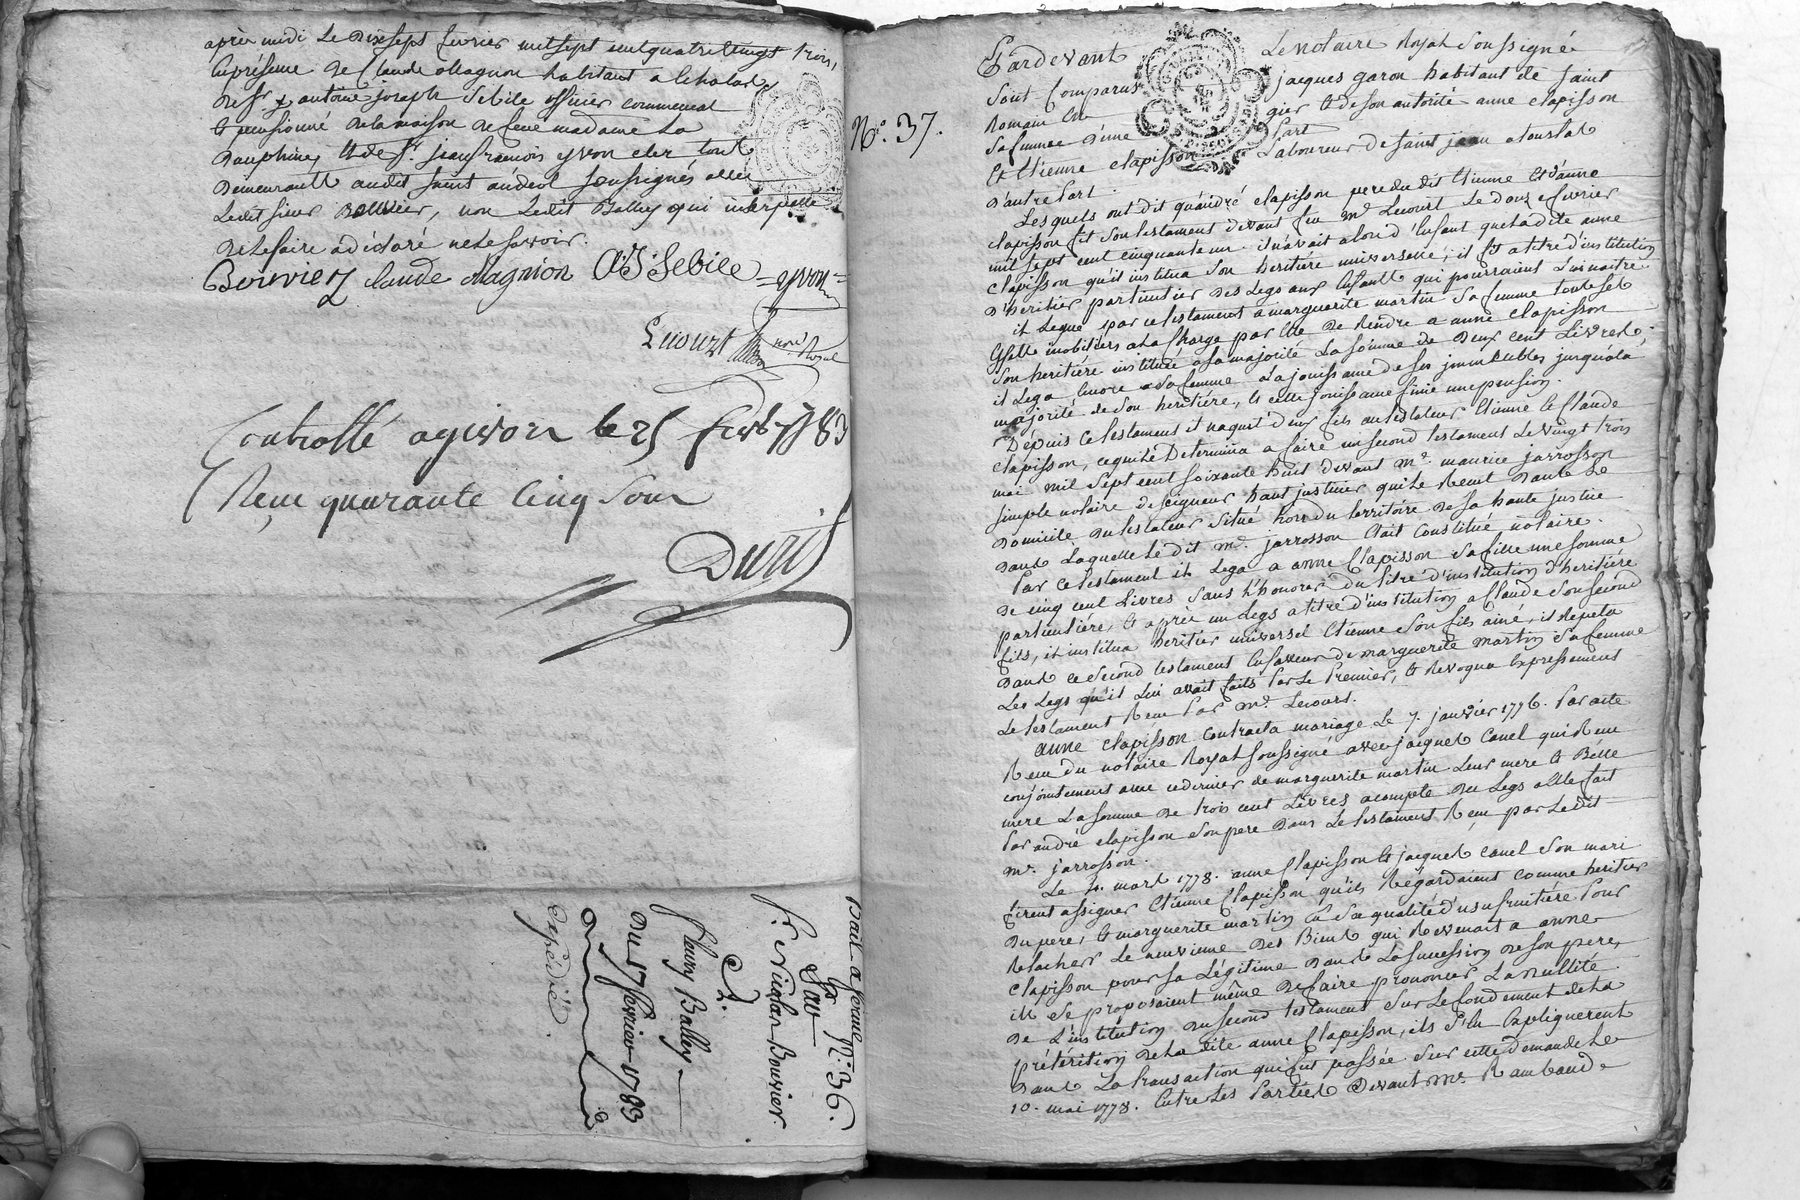 après midi le dixsept fevrier mil sept cent quatre vingt trois,
en présence de Claude Magnon habitant a
de Sr antoine joseph Sebile officier commensal
et pensionné de la maison de feue madame la
Dauphine, et de Sr jean francois yvon clerc tout
demeurant audit saint andeol soussignés avec
ledit sieur Bouvier, non ledit Balley qui interpellé
de le faire a déclaré ne le savoir.
Bouvier Claude Magnion A:J: Sebile =yvon=
Lecourt
Controllé a givors le 25 fevr 1783
Reçu quarante cinq sous
Duris
Bail a ferme
No. 36.
Par
Sr Nicolas Bouvier
a
fleury Balley
Du 17 fevrier 1783
Expédié.
No. 37.
Pardevant Le Notaire Royal Soussigné
sont comparus jacques garon habitant de saint
Romain en gier et de son autorité anne clapisson
sa femme d'une Part
Et Etienne clapisson Laboureur de saint jean a touslas
D'autre Part.
Lesquels ont dit qu'andré clapisson pere dudit Etienne et d'anne
clapisson fit son testament devant feu me Lecourt le douze fevrier
mil sept cent cinquante un. il n'avait alors d'enfant que ladite anne
clapisson qu'il institua son heritière universelle; il fit a titre d'institution
d'heritier particulier des Legs aux enfants qui pourraient lui naitre.
il legue par ce testament a marguerite martin sa femme tout ses
Effets mobiliers a la charge par elle de rendre a anne clapisson
son heritière instituée a sa majorité la somme de deux cent livres.
il lega encore a sa femme la jouissance de ses immeubles jusqu'a la
majorité de son heritière, et cette jouissance finie une pension.
Depuis ce testament il naquit deux fils au testateur Etienne et Claude
clapisson, ce qui le determina a faire un second testament le vingt trois
mai mil sept cent soixante huit devant me maurice jarrosson
simple notaire de seigneur haut justicier qui le recut dans le
domicile du testateur situé hors du territoire de la haute justice
dans laquelle ledit me jarrosson était constitué notaire.
Par ce testament il lega a anne clapisson sa fille une somme
de cinq cent livres sans l'honorer du titre d'institution d'heritière
particulière, et après un legs a titre d'institution a Claude son second
fils, il institua heritier universel Etienne son fils ainé, il repeta
dans ce second testament en faveur de marguerite martin sa femme
les legs qu'il lui avait faits par le Premier, et revoqua expressement
le testament Reçu par me Lecourt.
anne clapisson contracta mariage le 7. janvier 1776. par acte
Recu du notaire Royal soussigné avec jacques canel qui recut
conjointement avec ce dernier de marguerite martin leur mere et Belle
mere la somme de trois cent livres acompte du legs a elle fait
par andré clapisson son pere dans le testament Reçu par ledit
me jarrosson.
Le mars 1778. anne clapisson et jacques canel son mari
firent assigner Etienne clapisson qu'ils regardaient comme heritier
du pere, et marguerite martin en sa qualité d'usufruitière pour
relacher le neuvieme des Biens qui revenait a anne
clapisson pour sa légitime dans la succession de son pere,
ils se proposaient même de faire prononcer la nullité
de l'institution du second testament sur le fondement de la
prétérition de la dite anne clapisson, ils s'en expliquerent
dans la transaction qui fut passée sur cette demande le
10. mai 1778. entre les parties devant me Rambaud